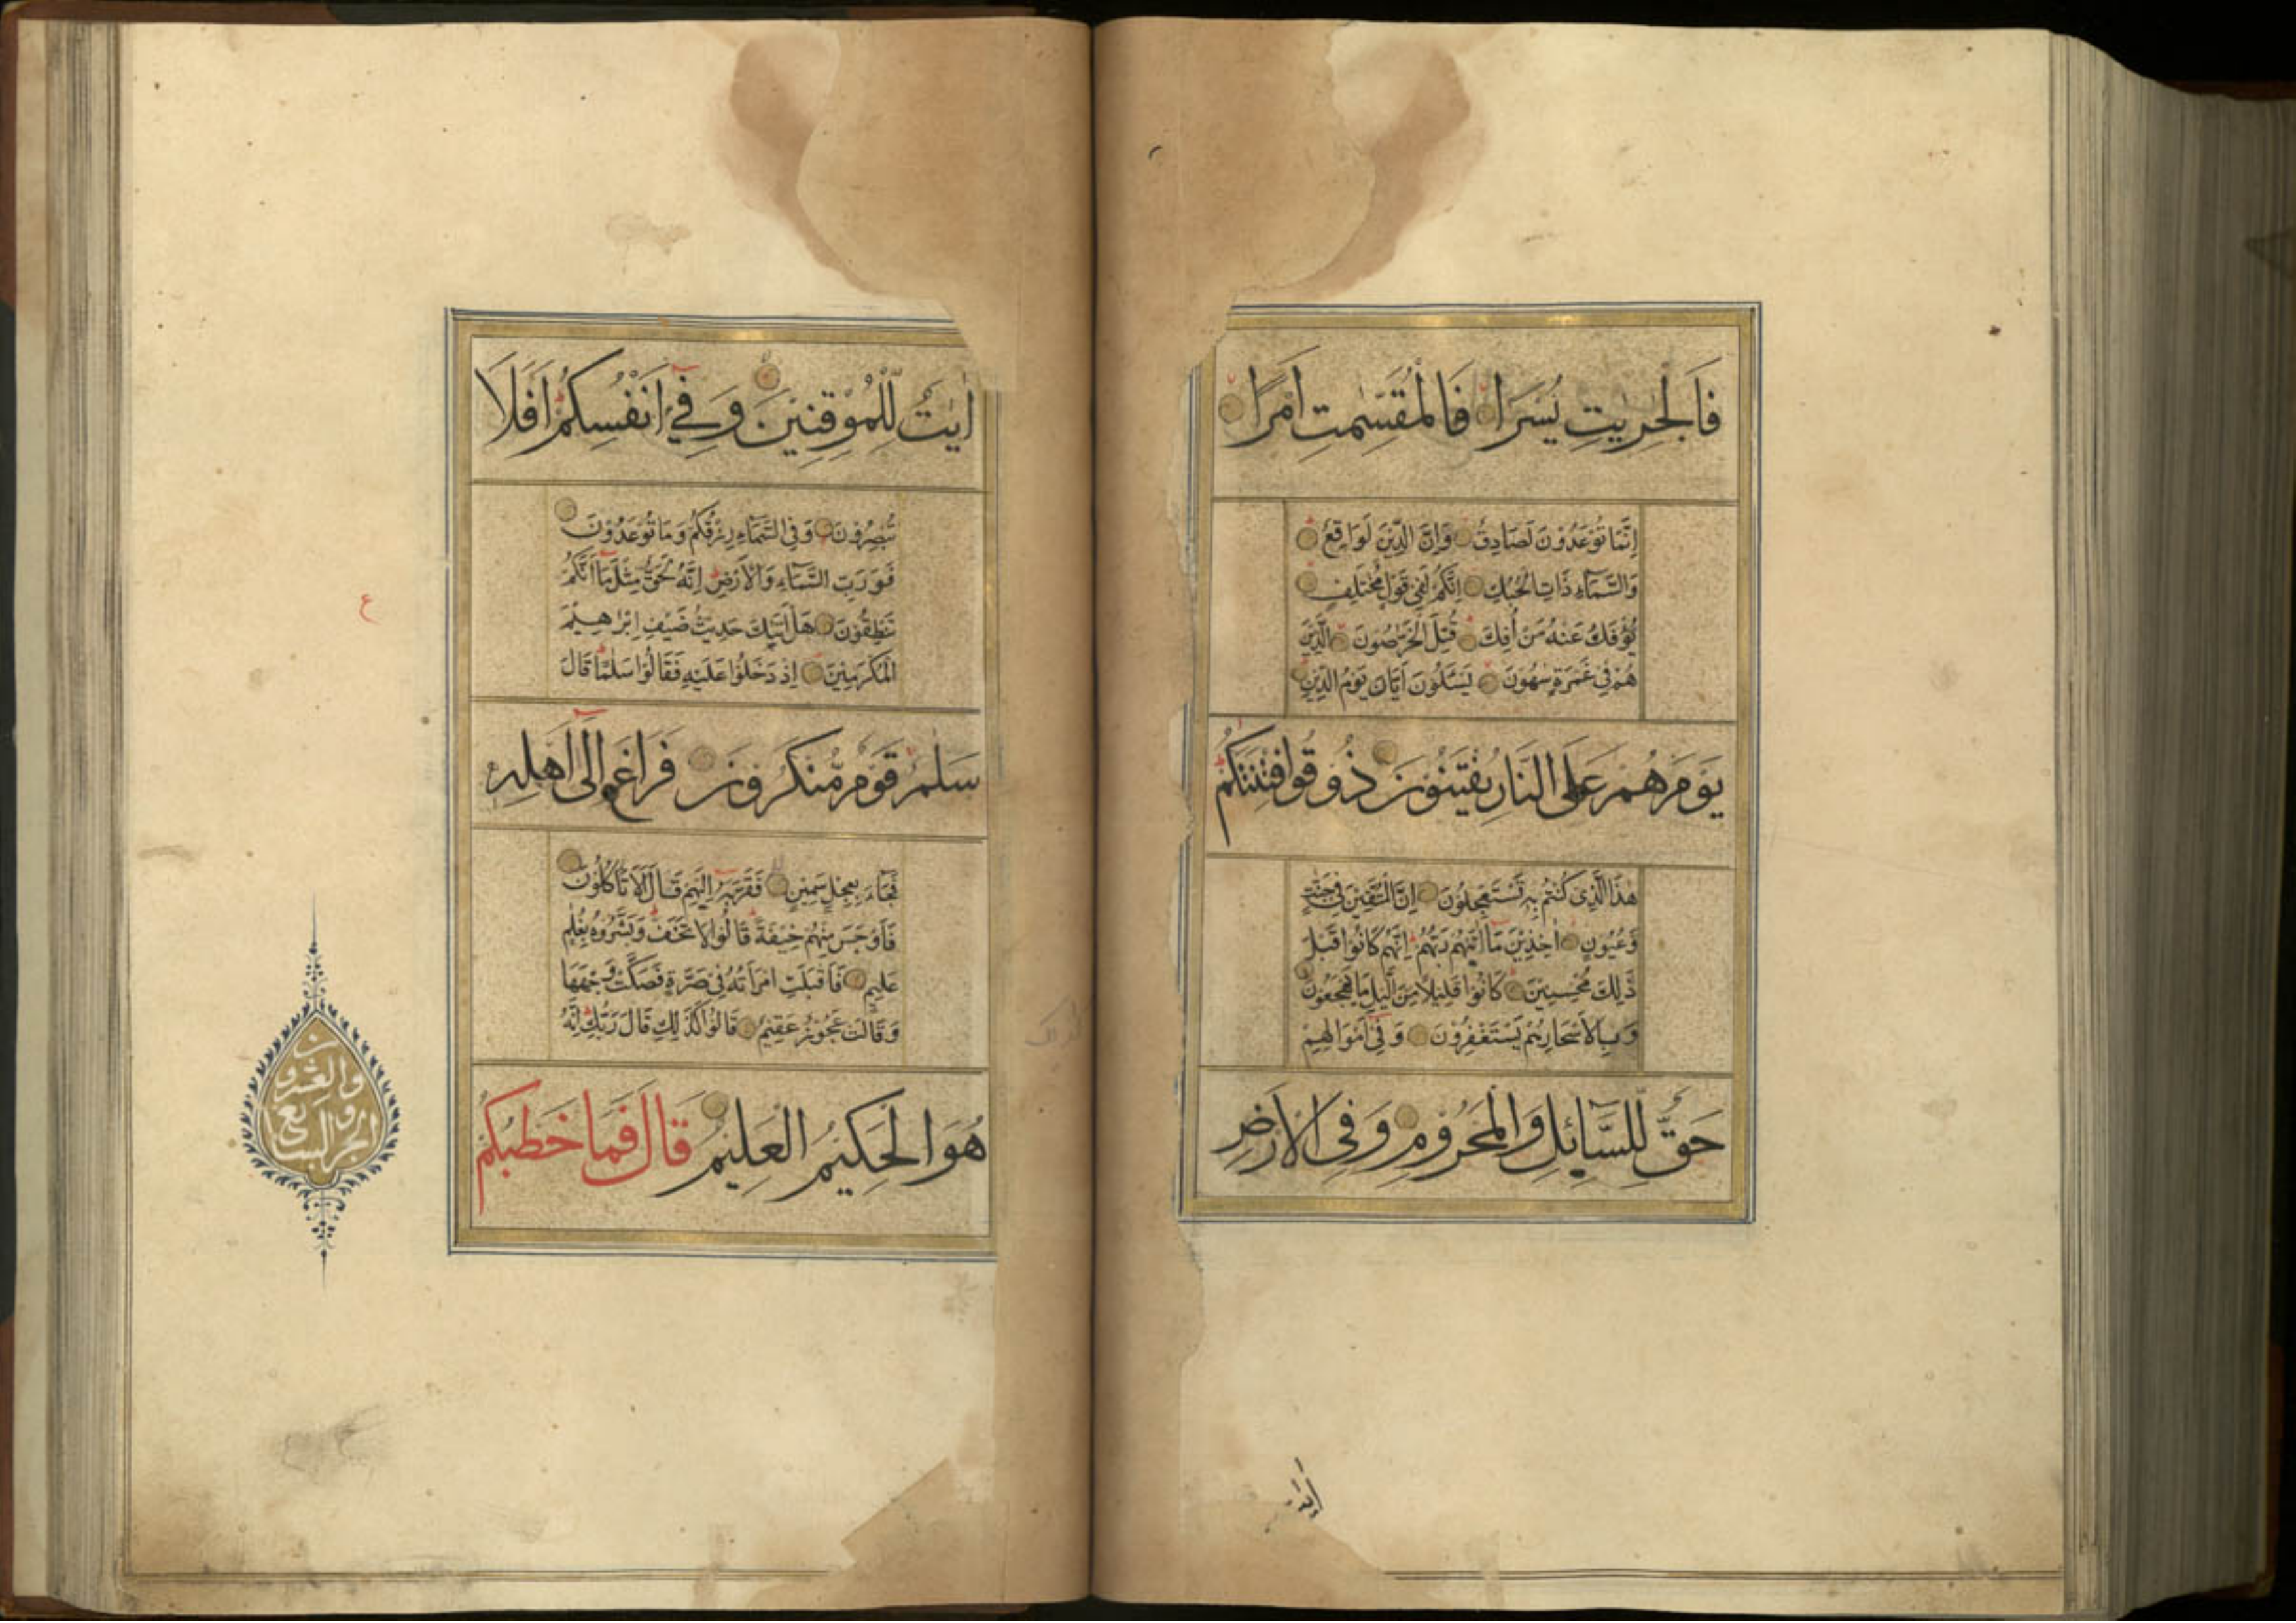 فَالْجٰرِيٰتِ يُسْرًا فَالْمُقَسِّمٰتِ اَمْرًا
اِنَّمَا تُوْعَدُوْنَ لَصَادِقٌ وَاِنَّ الدِّيْنَ لَوَاقِعٌ
وَالسَّمَآءِ ذَاتِ الْحُبُكِ اِنَّكُمْ لَفِيْ قَوْلٍ مُخْتَلِفٍ
يُؤْفَكُ عَنْهُ مَنْ اُفِكَ قُتِلَ الْخَرّٰصُوْنَ الَّذِيْنَ
هُمْ فِيْ غَمْرَةٍ سَاهُوْنَ يَسْئَلُوْنَ اَيَّانَ يَوْمُ الدِّيْنِ
يَوْمَ هُمْ عَلَى النَّارِ يُفْتَنُوْنَ ذُوْقُوْا فِتْنَتَكُمْ
هٰذَا الَّذِيْ كُنْتُمْ بِهٖ تَسْتَعْجِلُوْنَ اِنَّ الْمُتَّقِيْنَ فِيْ جَنّٰتٍ
وَّعُيُوْنٍ اٰخِذِيْنَ مَآ اٰتٰهُمْ رَبُّهُمْ اِنَّهُمْ كَانُوْا قَبْلَ
ذٰلِكَ مُحْسِنِيْنَ كَانُوْا قَلِيْلًا مِنَ الَّيْلِ مَا يَهْجَعُوْنَ
وَبِالْاَسْحَارِ هُمْ يَسْتَغْفِرُوْنَ وَفِيْ اَمْوَالِهِمْ
حَقٌّ لِّلسَّآئِلِ وَالْمَحْرُوْمِ وَفِي الْاَرْضِ
اٰيٰتٌ
اٰيٰتٌ لِّلْمُوْقِنِيْنَ وَفِيْٓ اَنْفُسِكُمْ اَفَلَا
تُبْصِرُوْنَ وَفِي السَّمَآءِ رِزْقُكُمْ وَمَا تُوْعَدُوْنَ
فَوَرَبِّ السَّمَآءِ وَالْاَرْضِ اِنَّهٗ لَحَقٌّ مِّثْلَ مَآ اَنَّكُمْ
تَنْطِقُوْنَ هَلْ اَتٰىكَ حَدِيْثُ ضَيْفِ اِبْرٰهِيْمَ
الْمُكْرَمِيْنَ اِذْ دَخَلُوْا عَلَيْهِ فَقَالُوْا سَلٰمًا قَالَ
سَلٰمٌ قَوْمٌ مُّنْكَرُوْنَ فَرَاغَ اِلٰٓى اَهْلِهٖ
فَجَآءَ بِعِجْلٍ سَمِيْنٍ فَقَرَّبَهٗٓ اِلَيْهِمْ قَالَ اَلَا تَاْكُلُوْنَ
فَاَوْجَسَ مِنْهُمْ خِيْفَةً قَالُوْا لَا تَخَفْ وَبَشَّرُوْهُ بِغُلٰمٍ
عَلِيْمٍ فَاَقْبَلَتِ امْرَاَتُهٗ فِيْ صَرَّةٍ فَصَكَّتْ وَجْهَهَا
وَقَالَتْ عَجُوْزٌ عَقِيْمٌ قَالُوْا كَذٰلِكِ قَالَ رَبُّكِ اِنَّهٗ
هُوَ الْحَكِيْمُ الْعَلِيْمُ قَالَ فَمَا خَطْبُكُمْ
ع
الجزو السابع
والعشرون